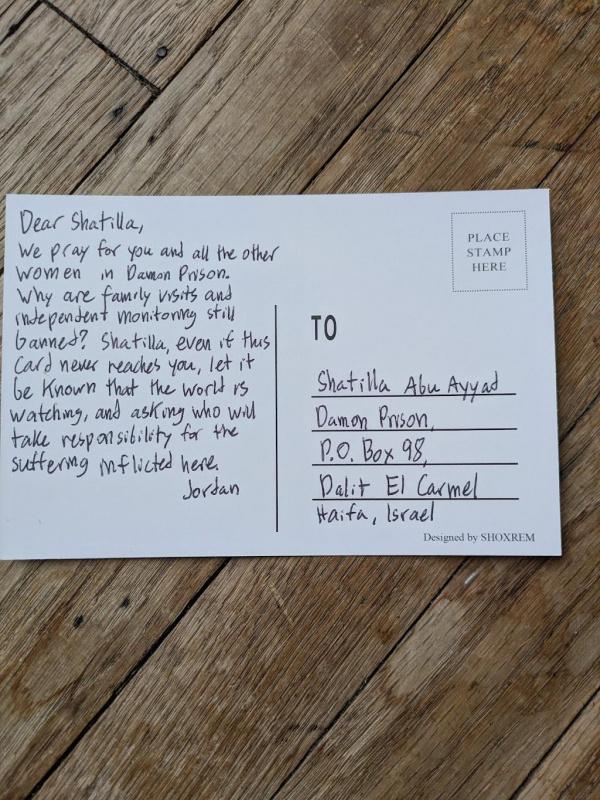 Dear Shatilla,
We pray for you and all the other
women in Damon Prison.
Why are family visits and
independent monitoring still
banned? Shatilla, even if this
Card never reaches you, let it
be Known that the world is
watching, and asking who will
take responsibility for the
suffering inflicted here.
Jordan
PLACE
STAMP
HERE
TO
Shatilla Abu Ayyad
Damon Prison,
P.O. Box 98,
Dalit El Carmel
Haifa, Israel
Designed by SHOXREM